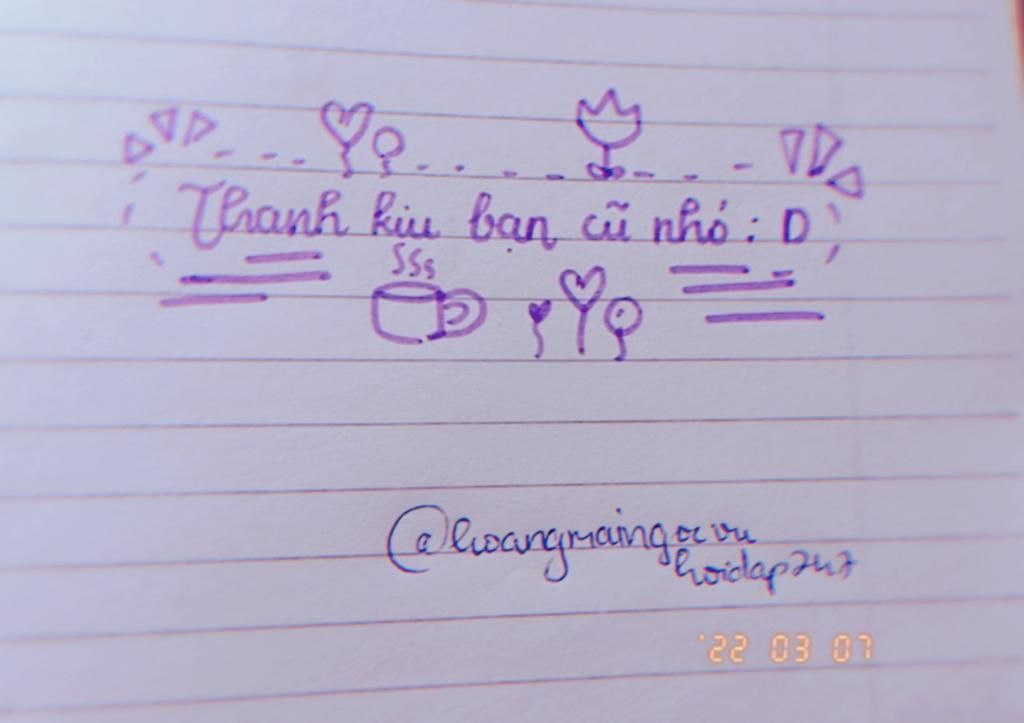 Thanh kiu bạn cũ nhó : D
@hoangmaingocvu
hoidap247
'22 03 07